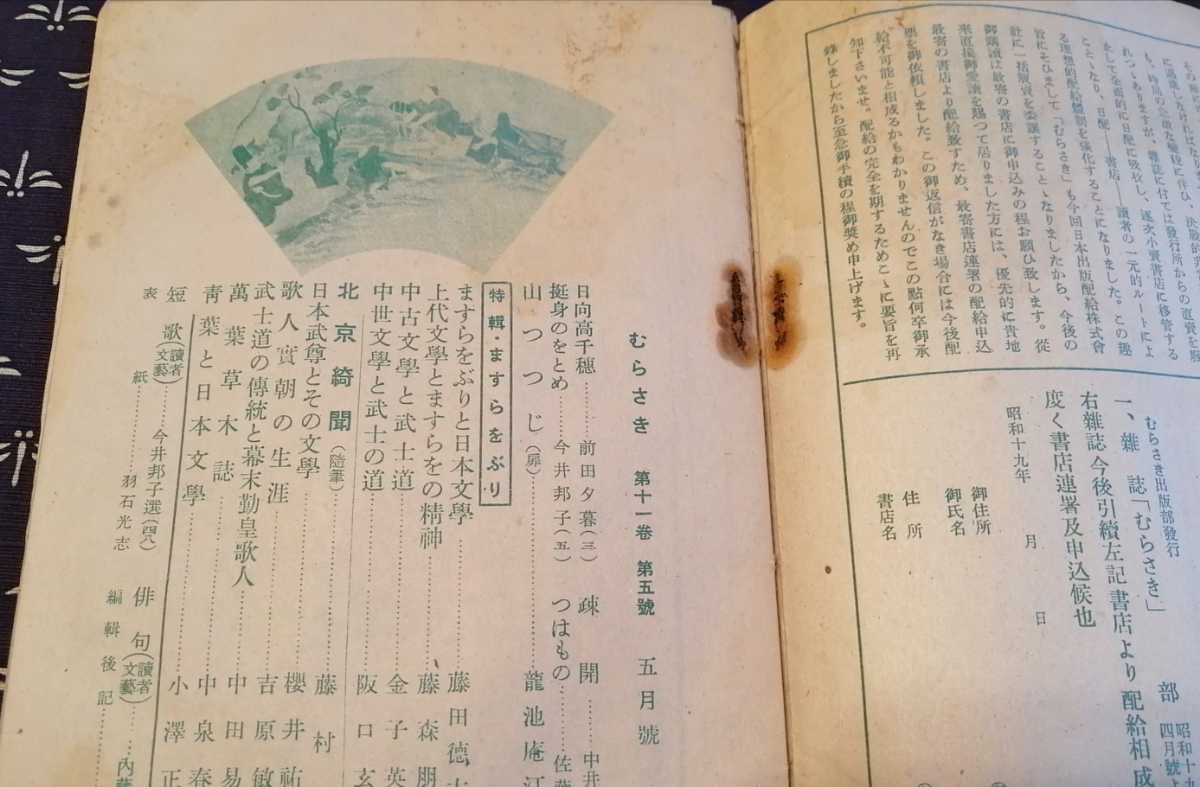 に過
も、時局の急激な
れつゝありますが、雜誌に付ては發行所からの直賣を廢
まして全面的に日配に吸收し、逐次小賣書店に移管する
ことゝなり、日配――書店――讀者の一元的ルートによ
る理想的配給體制を強化することになりました。この趣
旨にそひまして「むらさき」も今回日本出版配給株式會
社に一括販賣を委讓することゝなりましたから、今後の
御購讀は最寄の書店に御申込みの程お願ひ致します。從
來直接御愛讀を賜つて居りました方には、優先的に貴地
最寄の書店より配給致すため、最寄書店連署の配給申込
票を御依頼しました。この御返信がなき場合には今後配
給不可能と相成るかもわかりませんのでこの點何卒御承
知下さいませ。配給の完全を期するためこゝに要旨を再
錄しましたから至急御手續の程御奬め申上げます。
むらさき出版部發行
一、雜誌「むらさき」 部
昭和十九
四月號よ
右雜誌今後引續左記書店より配給相成
度く書店連署及申込候也
昭和十九年 月 日
御住所
御氏名
住所
書店名
むらさき 第十一卷 第五號 五月號
日向高千穗……前田夕暮(三)
疎開……中井
挺身のをとめ……今井邦子(五)
つはもの……佐
山つつじ(扉)……龍池庵
特輯・ますらをぶり
ますらをぶりと日本文學……藤田德
上代文學とますらをの精神……藤森朋
中古文學と武士道……金子英
中世文學と武士の道……阪口玄
北京綺聞(隨筆)……藤村
日本武尊とその文學……櫻井祐
歌人實朝の生涯……吉原敏
武士道の傳統と幕末勤皇歌人……中田易
萬葉草木誌……中泉春
青葉と日本文學……小澤正
短歌(讀者文藝)……今井邦子選(四八)
俳句(讀者文藝)……內藤
表紙……羽石光志
編輯後記……